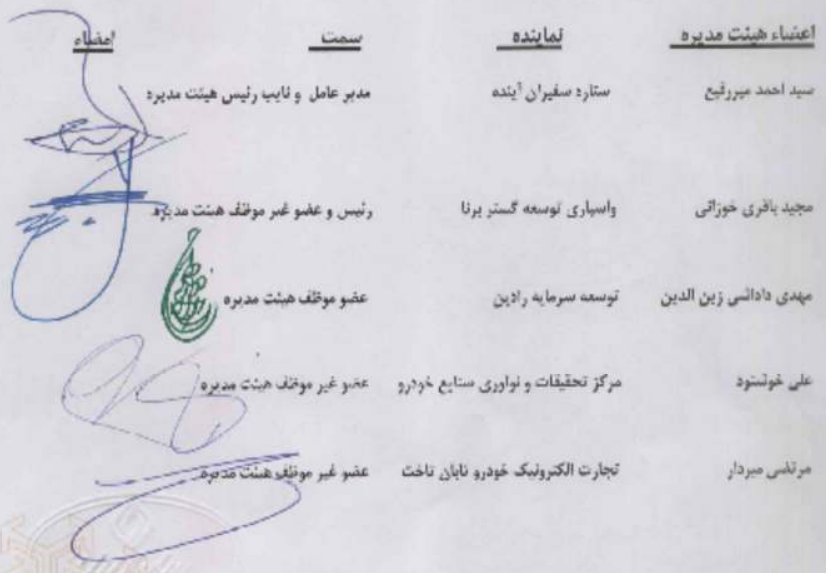 اعضاء هیئت مدیره نماینده سمت امضاء
سید احمد میررفیع ستاره سفیران آینده مدیر عامل و نایب رئیس هیئت مدیره
مجید باقری خوزانی واسپاری توسعه گستر برنا رئیس و عضو غیر موظف هیئت مدیره
مهدی دادائی زین الدین توسعه سرمایه رادین عضو موظف هیئت مدیره
علی خوشنود مرکز تحقیقات و نواوری صنایع خودرو عضو غیر موظف هیئت مدیره
مرتضی میردار تجارت الکترونیک خودرو تابان تاخت عضو غیر موظف هیئت مدیره